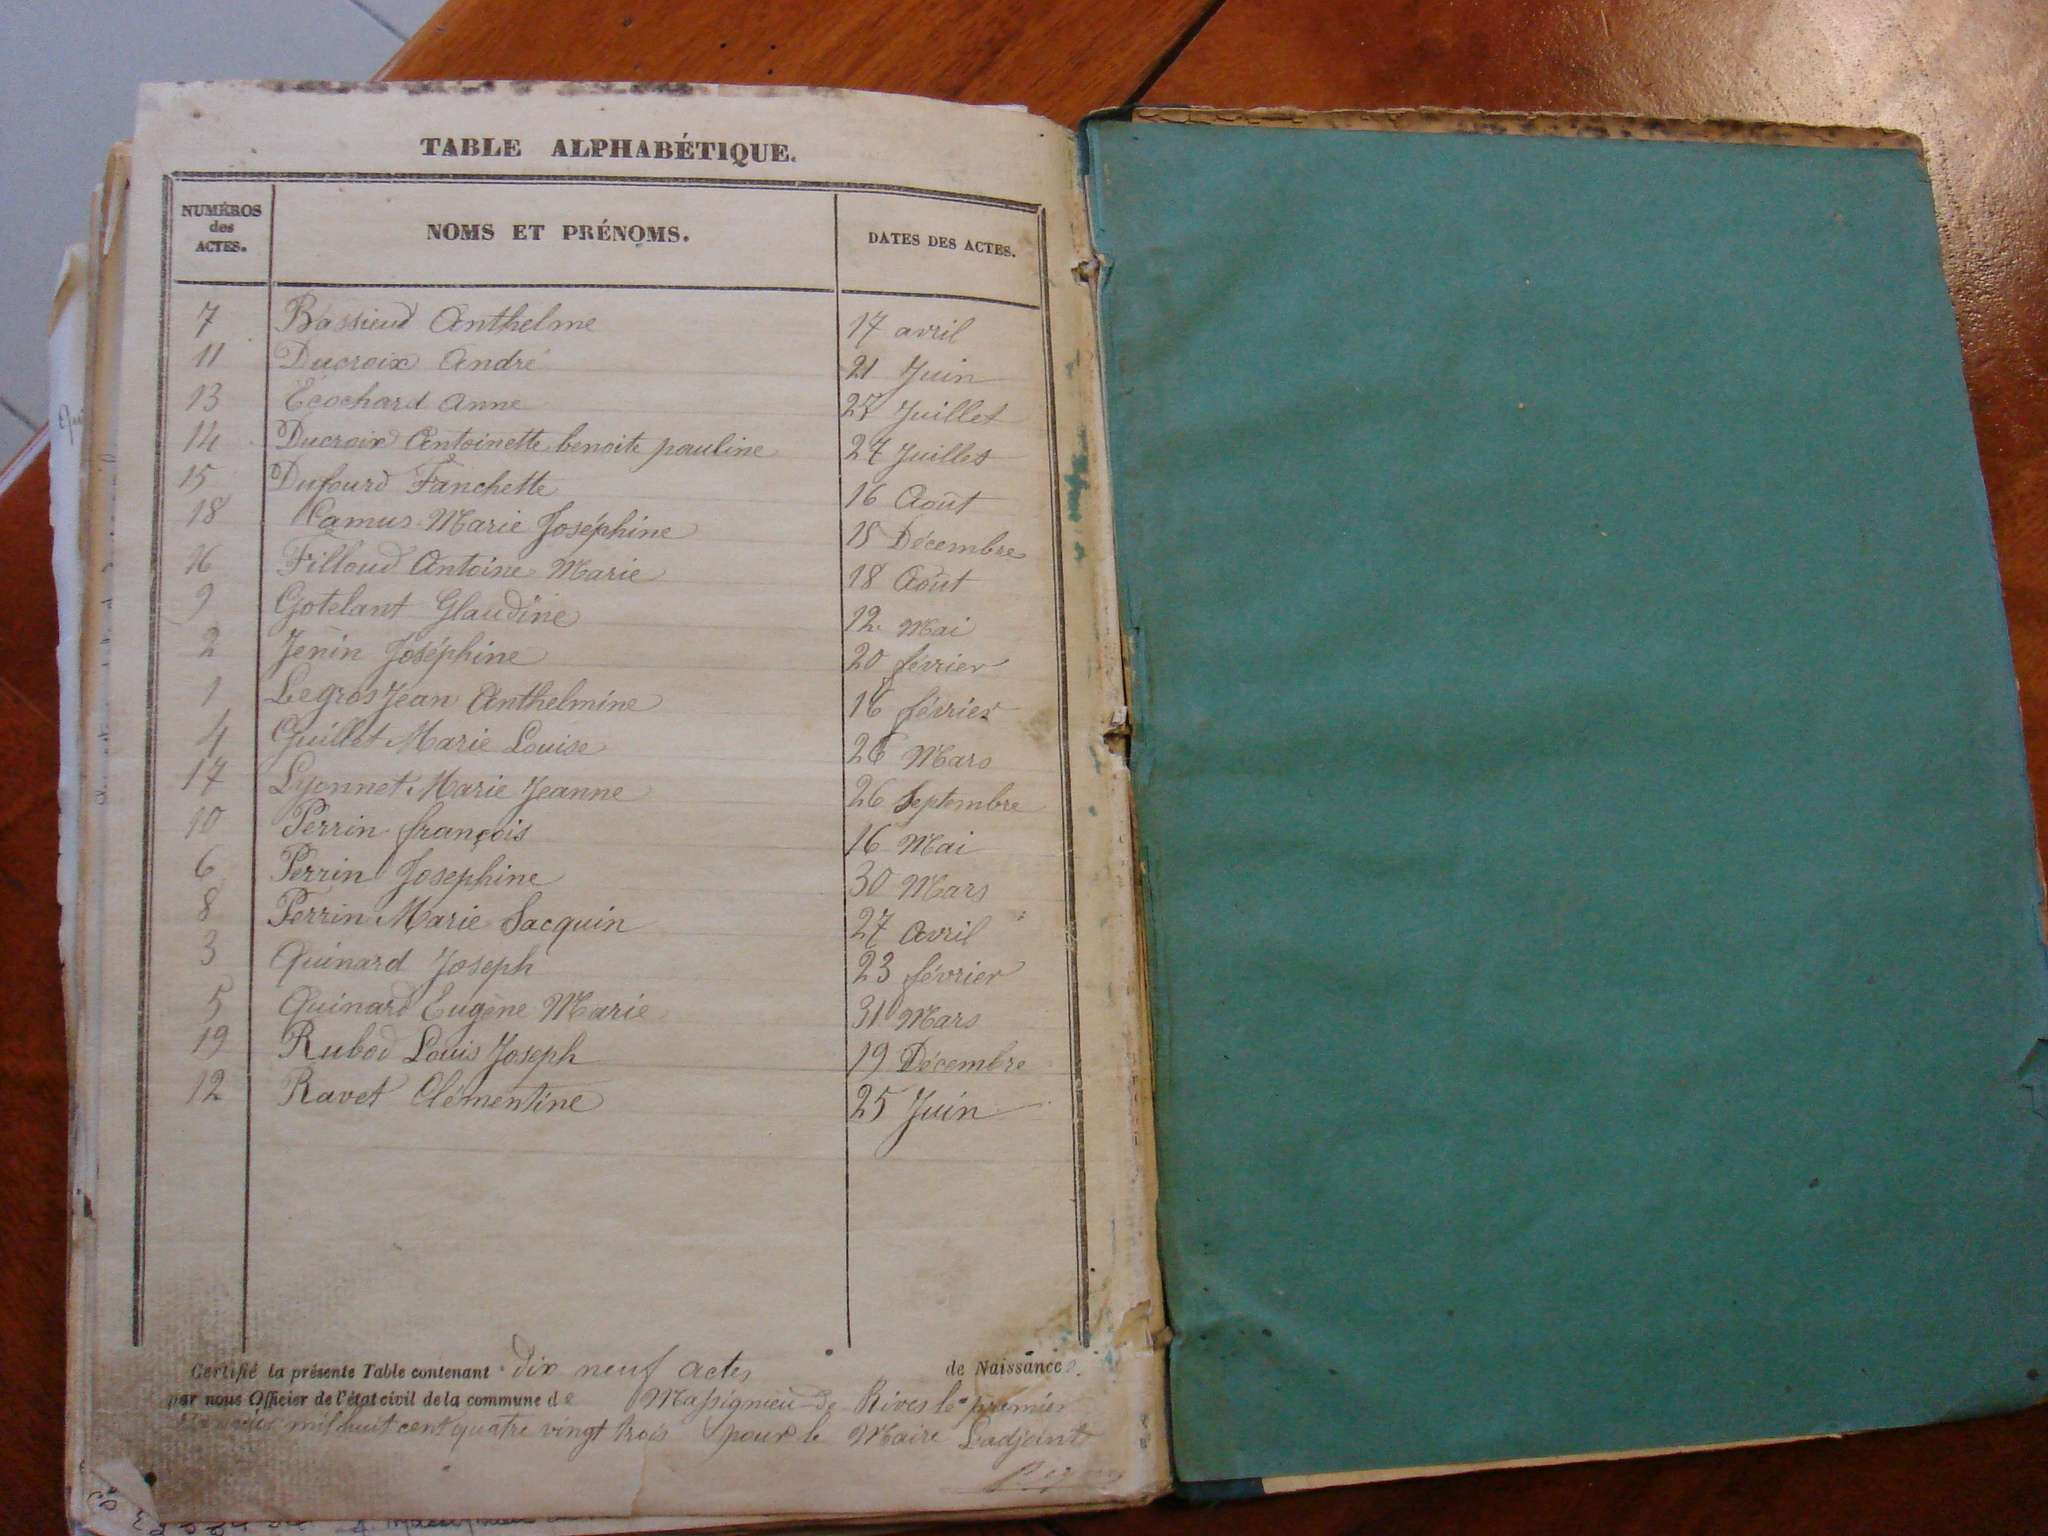 TABLE ALPHABÉTIQUE.
NUMÉROS des ACTES. NOMS ET PRÉNOMS. DATES DES ACTES.
7 Bassieud Anthelme 17 avril
11 Ducroix André 21 Juin
13 Ecochard Anne 27 Juillet
14 Ducroix Antoinette benoite pauline 27 Juillet
15 Dufourd Fanchette 16 Août
18 Camus Marie Joséphine 15 Décembre
16 Filloud Antoine Marie 18 Août
9 Gotelant Glaudine 12 Mai
2 Jenin Joséphine 20 février
1 Legros Jean Anthelmine 16 février
4 Guillet Marie Louise 26 Mars
17 Lyonnet Marie Jeanne 26 Septembre
10 Perrin françois 16 Mai
6 Perrin Josephine 30 Mars
8 Perrin Marie Jacquin 27 Avril
3 Quinard Joseph 23 février
5 Quinard Eugène Marie 31 Mars
19 Rubod Louis Joseph 19 Décembre
12 Ravet Clémentine 25 Juin
Certifié la présente Table contenant dix neuf actes de Naissances.
par nous Officier de l'état civil de la commune de Massignieu de Rives le premier
mil huit cent quatre vingt trois pour le Maire L'adjoint